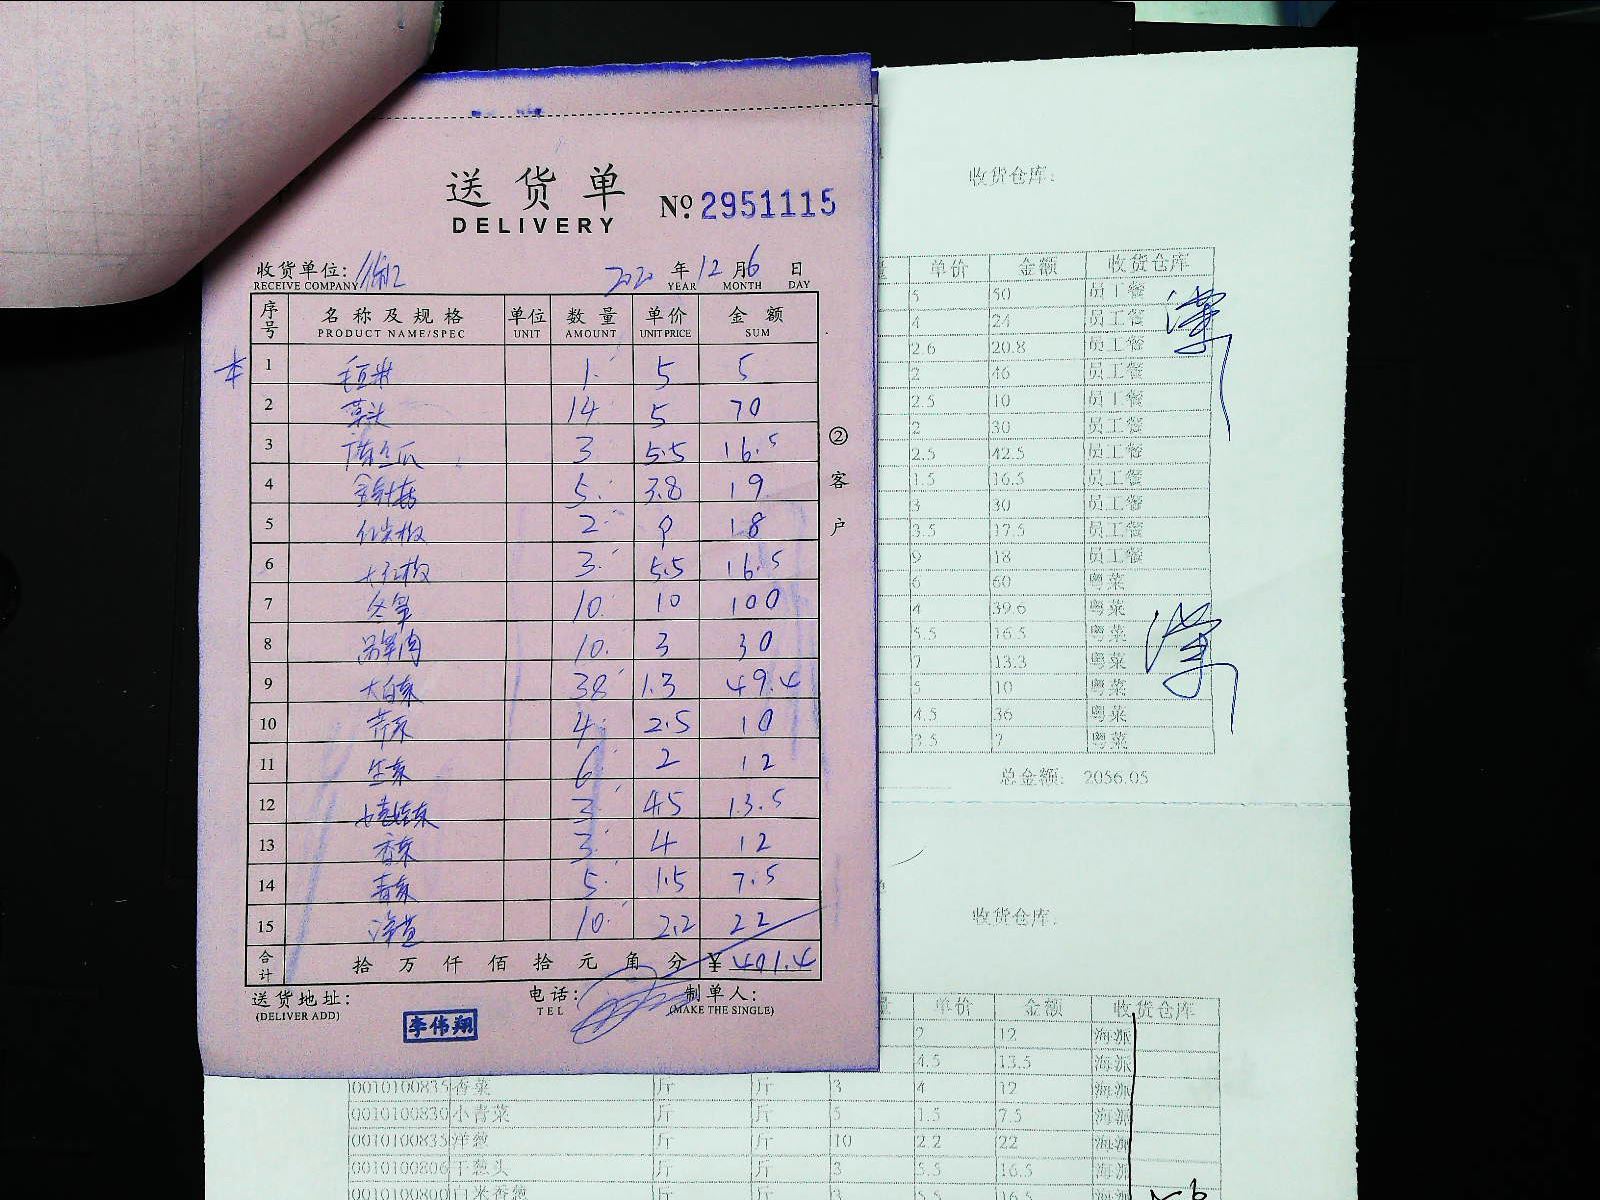 送货单
DELIVERY
№ 2951115
收货单位:
RECEIVE COMPANY
2020 年 12 月 6 日
YEAR MONTH DAY
序号 名称及规格 单位 数量 单价 金额
PRODUCT NAME/SPEC UNIT AMOUNT UNIT PRICE SUM
1 毛豆米 1 5 5
2 草头 14 5 70
3 3 5.5 16.5
4 金针菇 5 3.8 19
5 红尖椒 2 9 18
6 大红椒 3 5.5 16.5
7 冬笋 10 10 100
8 10 3 30
9 大白菜 38 1.3 49.4
10 芹菜 4 2.5 10
11 生菜 6 2 12
12 3 4.5 13.5
13 香菜 3 4 12
14 青菜 5 1.5 7.5
15 洋葱 10 2.2 22
合计 拾 万 仟 佰 拾 元 角 分 ¥ 401.4
送货地址: 电话: 制单人:
(DELIVER ADD) TEL (MAKE THE SINGLE)
李伟翔
②客户
收货仓库:
单价 金额 收货仓库
5 50 员工餐
4 24 员工餐
2.6 20.8 员工餐
2 46 员工餐
2.5 10 员工餐
2 30 员工餐
2.5 42.5 员工餐
1.5 16.5 员工餐
3 30 员工餐
3.5 17.5 员工餐
9 18 员工餐
6 60 粤菜
4 39.6 粤菜
5.5 16.5 粤菜
7 13.3 粤菜
5 10 粤菜
4.5 36 粤菜
3.5 7 粤菜
总金额: 2056.05
收货仓库:
量 单价 金额 收货仓库
2 12 海派
4.5 13.5 海派
0010100835 香菜 斤 斤 3 4 12 海派
0010100830 小青菜 斤 斤 5 1.5 7.5 海派
0010100835 洋葱 斤 斤 10 2.2 22 海派
0010100806 干葱头 斤 斤 3 5.5 16.5 海派
0010100800 白米香葱 斤 斤 3 5.5 16.5 海派